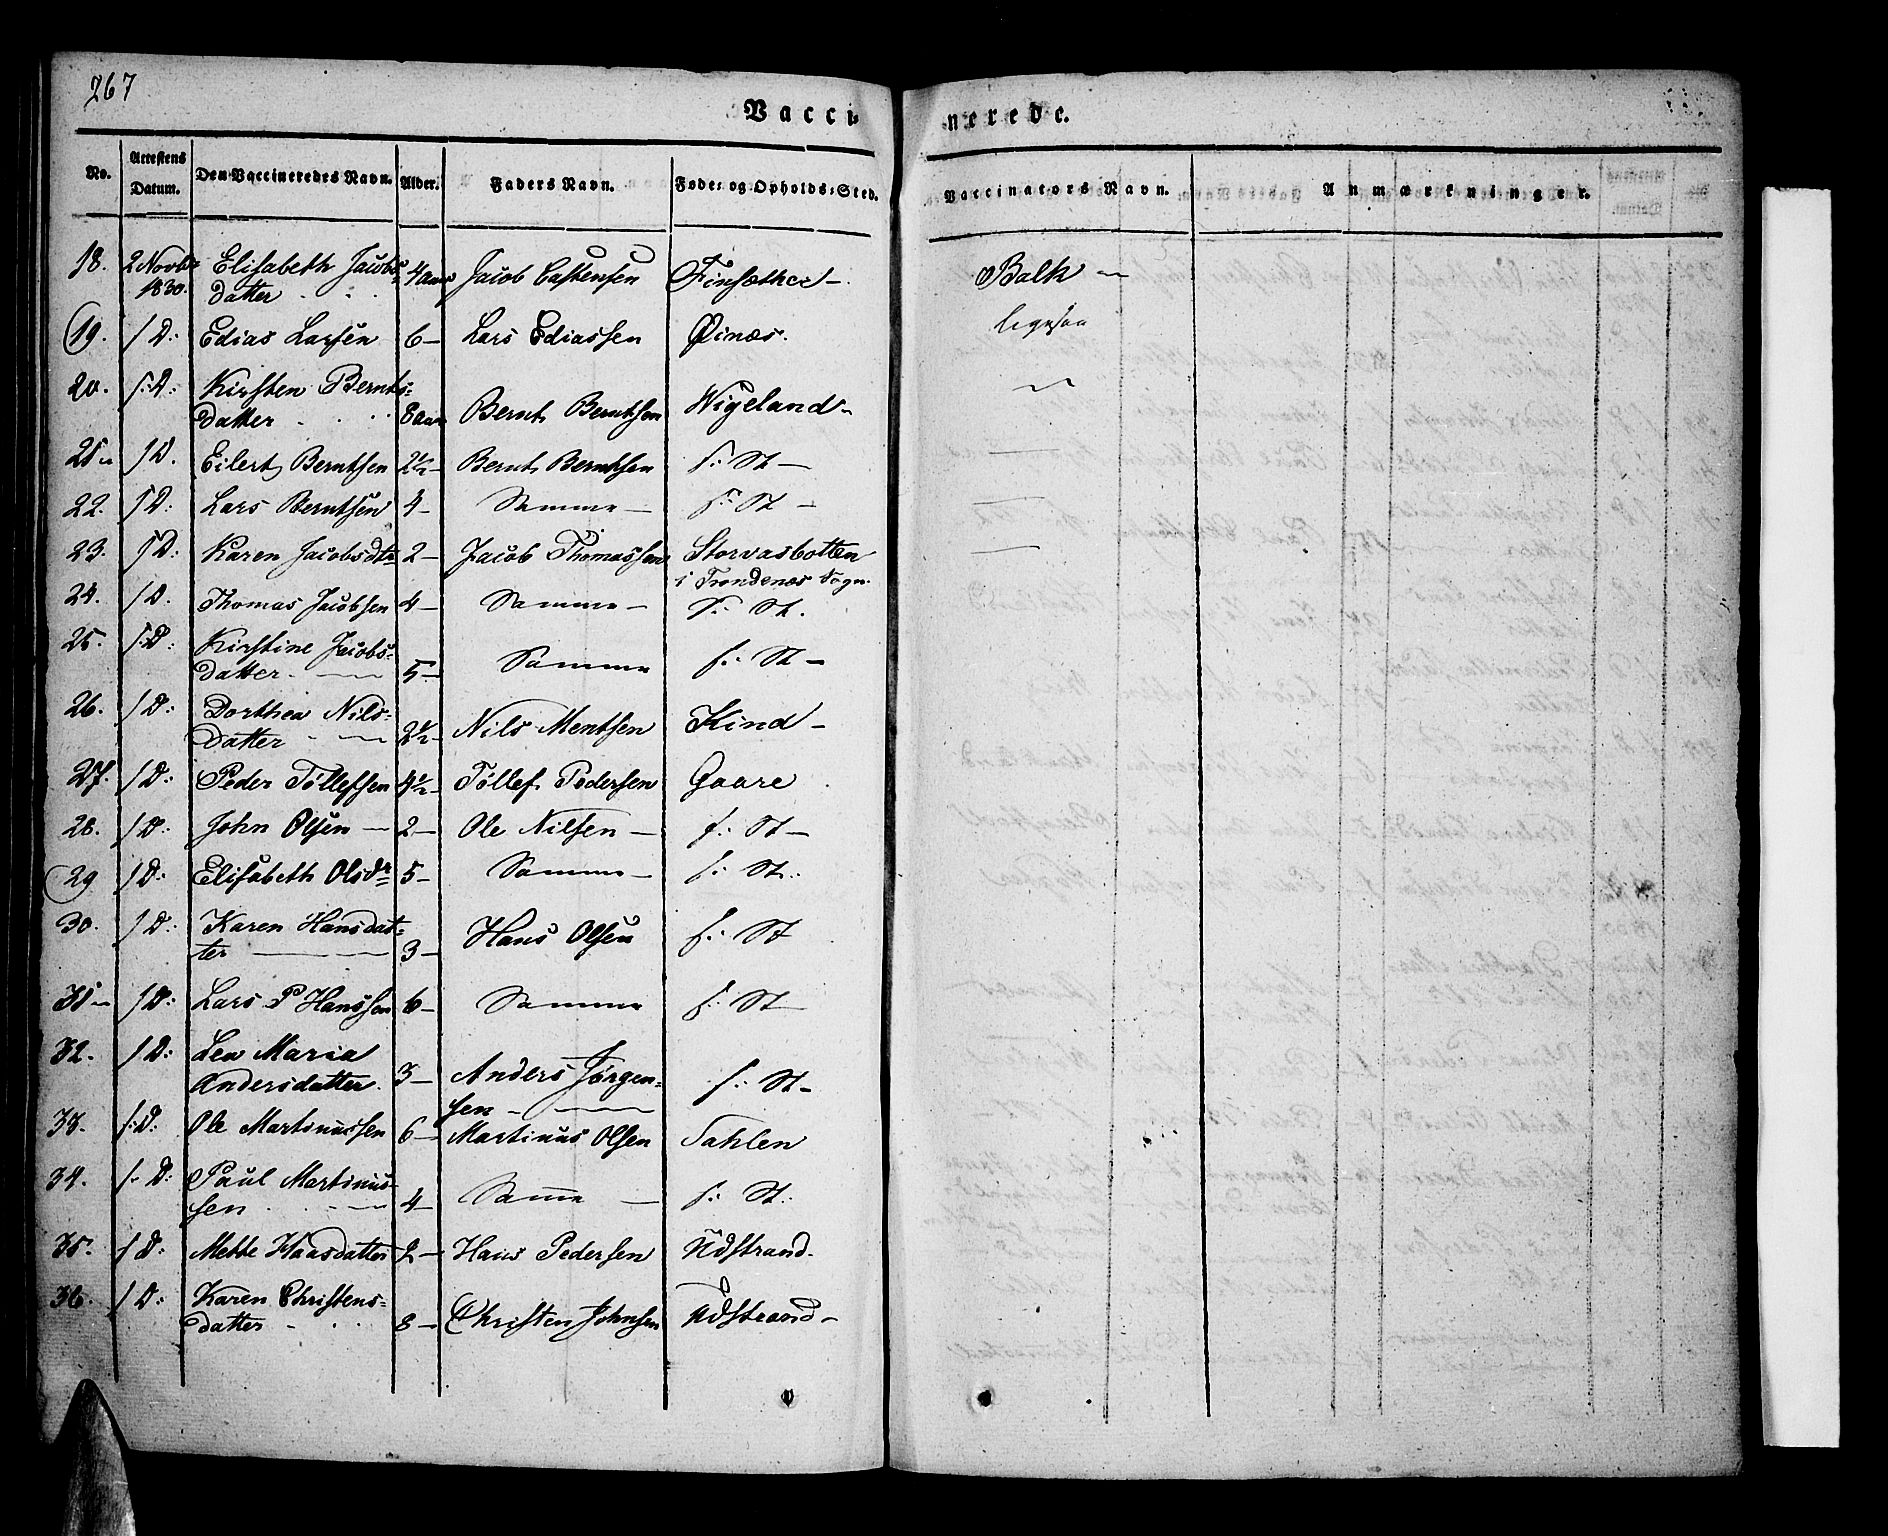 267
Vaccinerede.
No. Attestens Datum. Den Vaccineredes Navn. Alder. Faders Navn. Føde- og Opholds-Sted. Vaccinators Navn. Anmærkninger.
18. 2 Novbr Elisabeth Jacobs= 4 aar Jacob Castensen Finsæther – Balk –
1830. datter
19. s D: Edias Larsen 6 – Lars Ediassen Øinæs. ligesaa
20. s: D: Kirsten Bernts=
datter 8 aar Bernt Berntsen Wigeland –
21 s D. Eilert Berntsen 2½ – Bernt Berntsen s: St –
22. s D: Lars Berntsen 4 – Samme – s: St –
23. s D: Karen Jacobsdtr 2 – Jacob Thomassen Storvasbotten
i Trondenæs Sogn.
24. s D. Thomas Jacobsen 4 – Samme – s: St.
25. s: D: Kirstine Jacobs=
datter. 5 – Samme s: St –
26. s D: Dorthea Nils=
datter 2½ – Nils Mentsen Kind –
27. s D: Peder Tøllefsen 4½ – Tøllef Pedersen Gaare
28. s D: John Olsen – 2 – Ole Nilsen – s: St –
29 s D: Elisabeth Olsdr 5 – Samme – s: St:
30. s D: Karen Hansdat=
ter 3 – Hans Olsen s: St
31 s D: Lars P Hanssen 6 – Samme s: St –
32. s D: Lea Maria
Andersdatter. 3 – Anders Jørgen= s: St –
sen –
33. s: D: Ole Martinussen 6 – Martinus Olsen Sahlen
34. s. D: Paul Martinus
sen 4 – Same – s: St:
35. s D: Mette Haasdatter 2 – Hans Pedersen Udstrand.
36. s D: Karen Christens=
datter 8 – Christen Johnsen Udstrand –